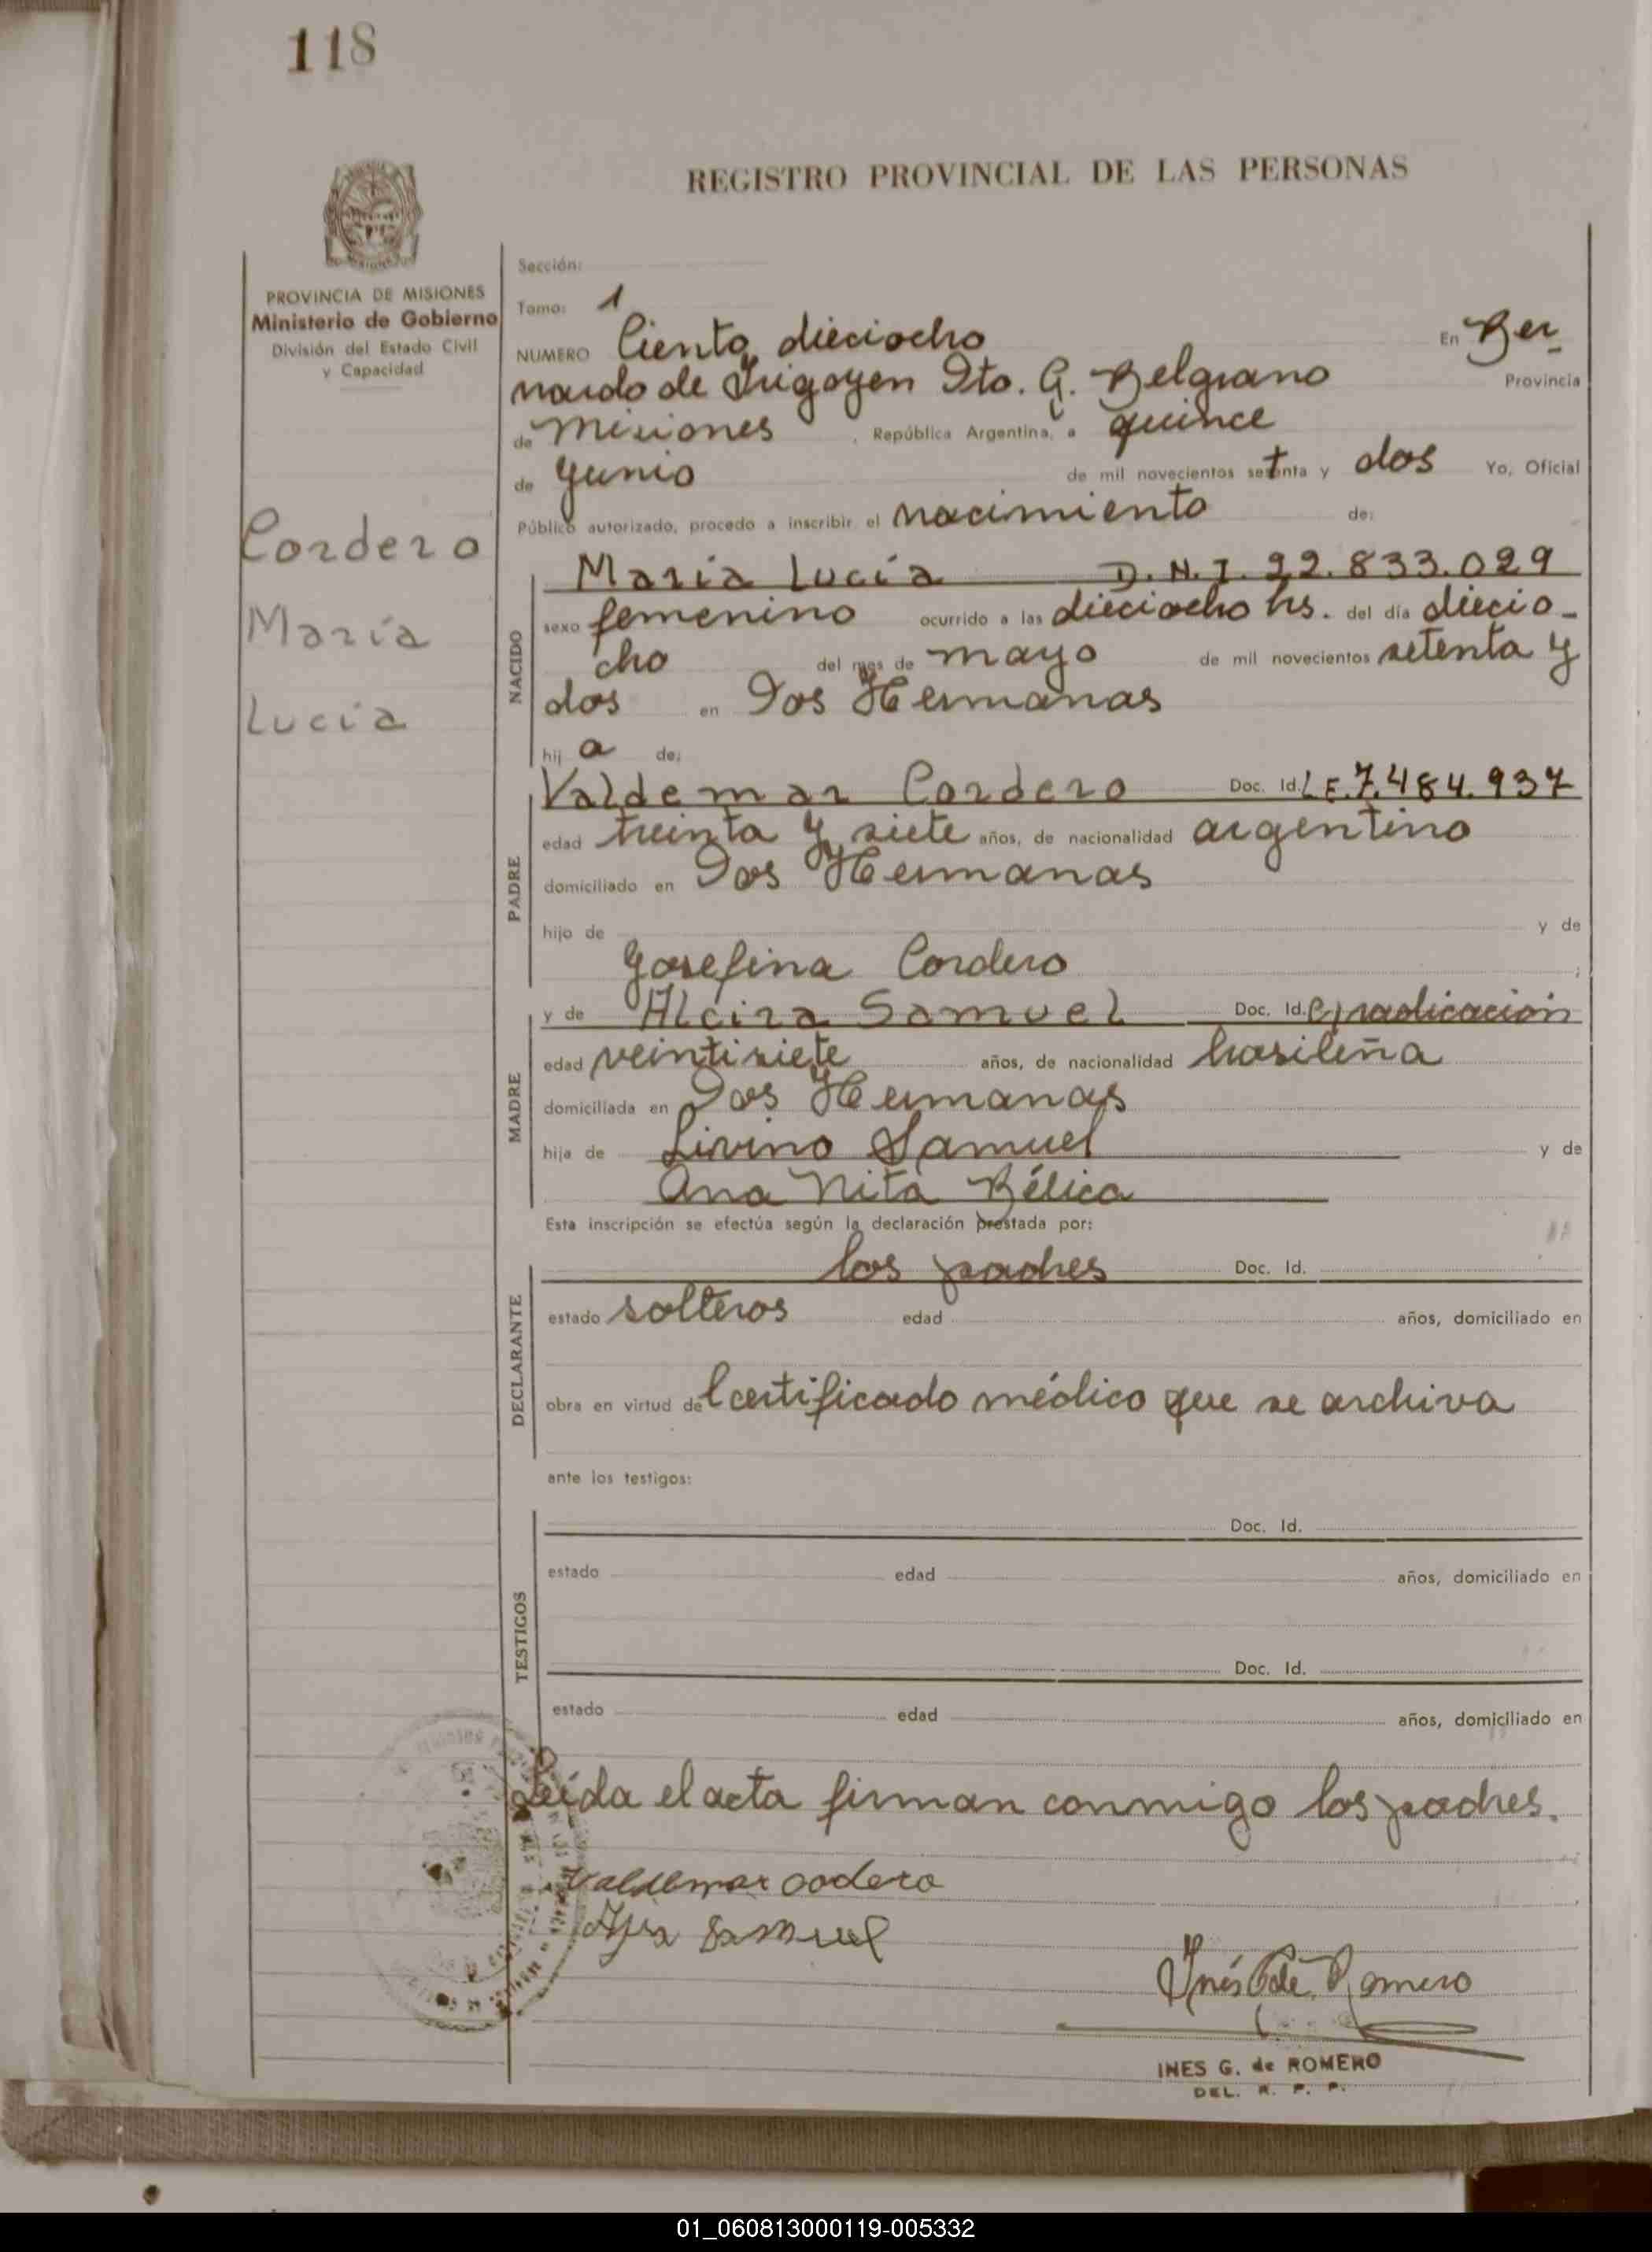 118
REGISTRO PROVINCIAL DE LAS PERSONAS
PROVINCIA DE MISIONES
Ministerio de Gobierno
División del Estado Civil
y Capacidad
Cordero
María
Lucía
Sección:
Tomo: 1
NUMERO Ciento dieciocho En Ber_
nardo de Irigoyen Dto. G. Belgrano Provincia
de Misiones , República Argentina, a quince
de Junio de mil novecientos setenta y dos Yo, Oficial
Público autorizado, procedo a inscribir el nacimiento de:
NACIDO
María Lucía D.N.I. 22.833.029
sexo femenino ocurrido a las dieciocho hs. del día diecio-
cho del mes de mayo de mil novecientos setenta y
dos en Dos Hermanas
hij a de:
PADRE
Valdemar Cordero Doc. Id. L.E. 7.484.937
edad treinta y siete años, de nacionalidad argentino
domiciliado en Dos Hermanas
hijo de y de
Josefina Cordero ;
MADRE
y de Alcira Samuel Doc. Id. C/radicación
edad veintisiete años, de nacionalidad brasileña
domiciliada en Dos Hermanas
hija de Livino Samuel y de
Ana Nita Bélica
Esta inscripción se efectúa según la declaración prestada por:
DECLARANTE
los padres Doc. Id.
estado solteros edad años, domiciliado en
obra en virtud del certificado médico que se archiva
ante los testigos:
TESTIGOS
Doc. Id.
estado edad años, domiciliado en
Doc. Id.
estado edad años, domiciliado en
Leída el acta firman conmigo los padres.
Valdemar codero
Samuel
Inés G de Romero
INES G. de ROMERO
DEL. R. P. P.
01_060813000119-005332